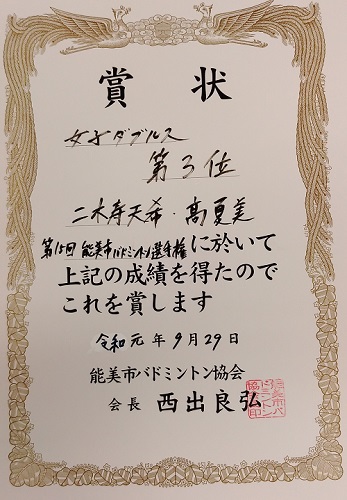 賞状
女子ダブルス
第3位
二木寿天希・高夏美
第15回 能美市バドミントン選手権に於いて
上記の成績を得たので
これを賞します
令和元年9月29日
能美市バドミントン協会
会長 西出良弘
能美市バドミントン協会印